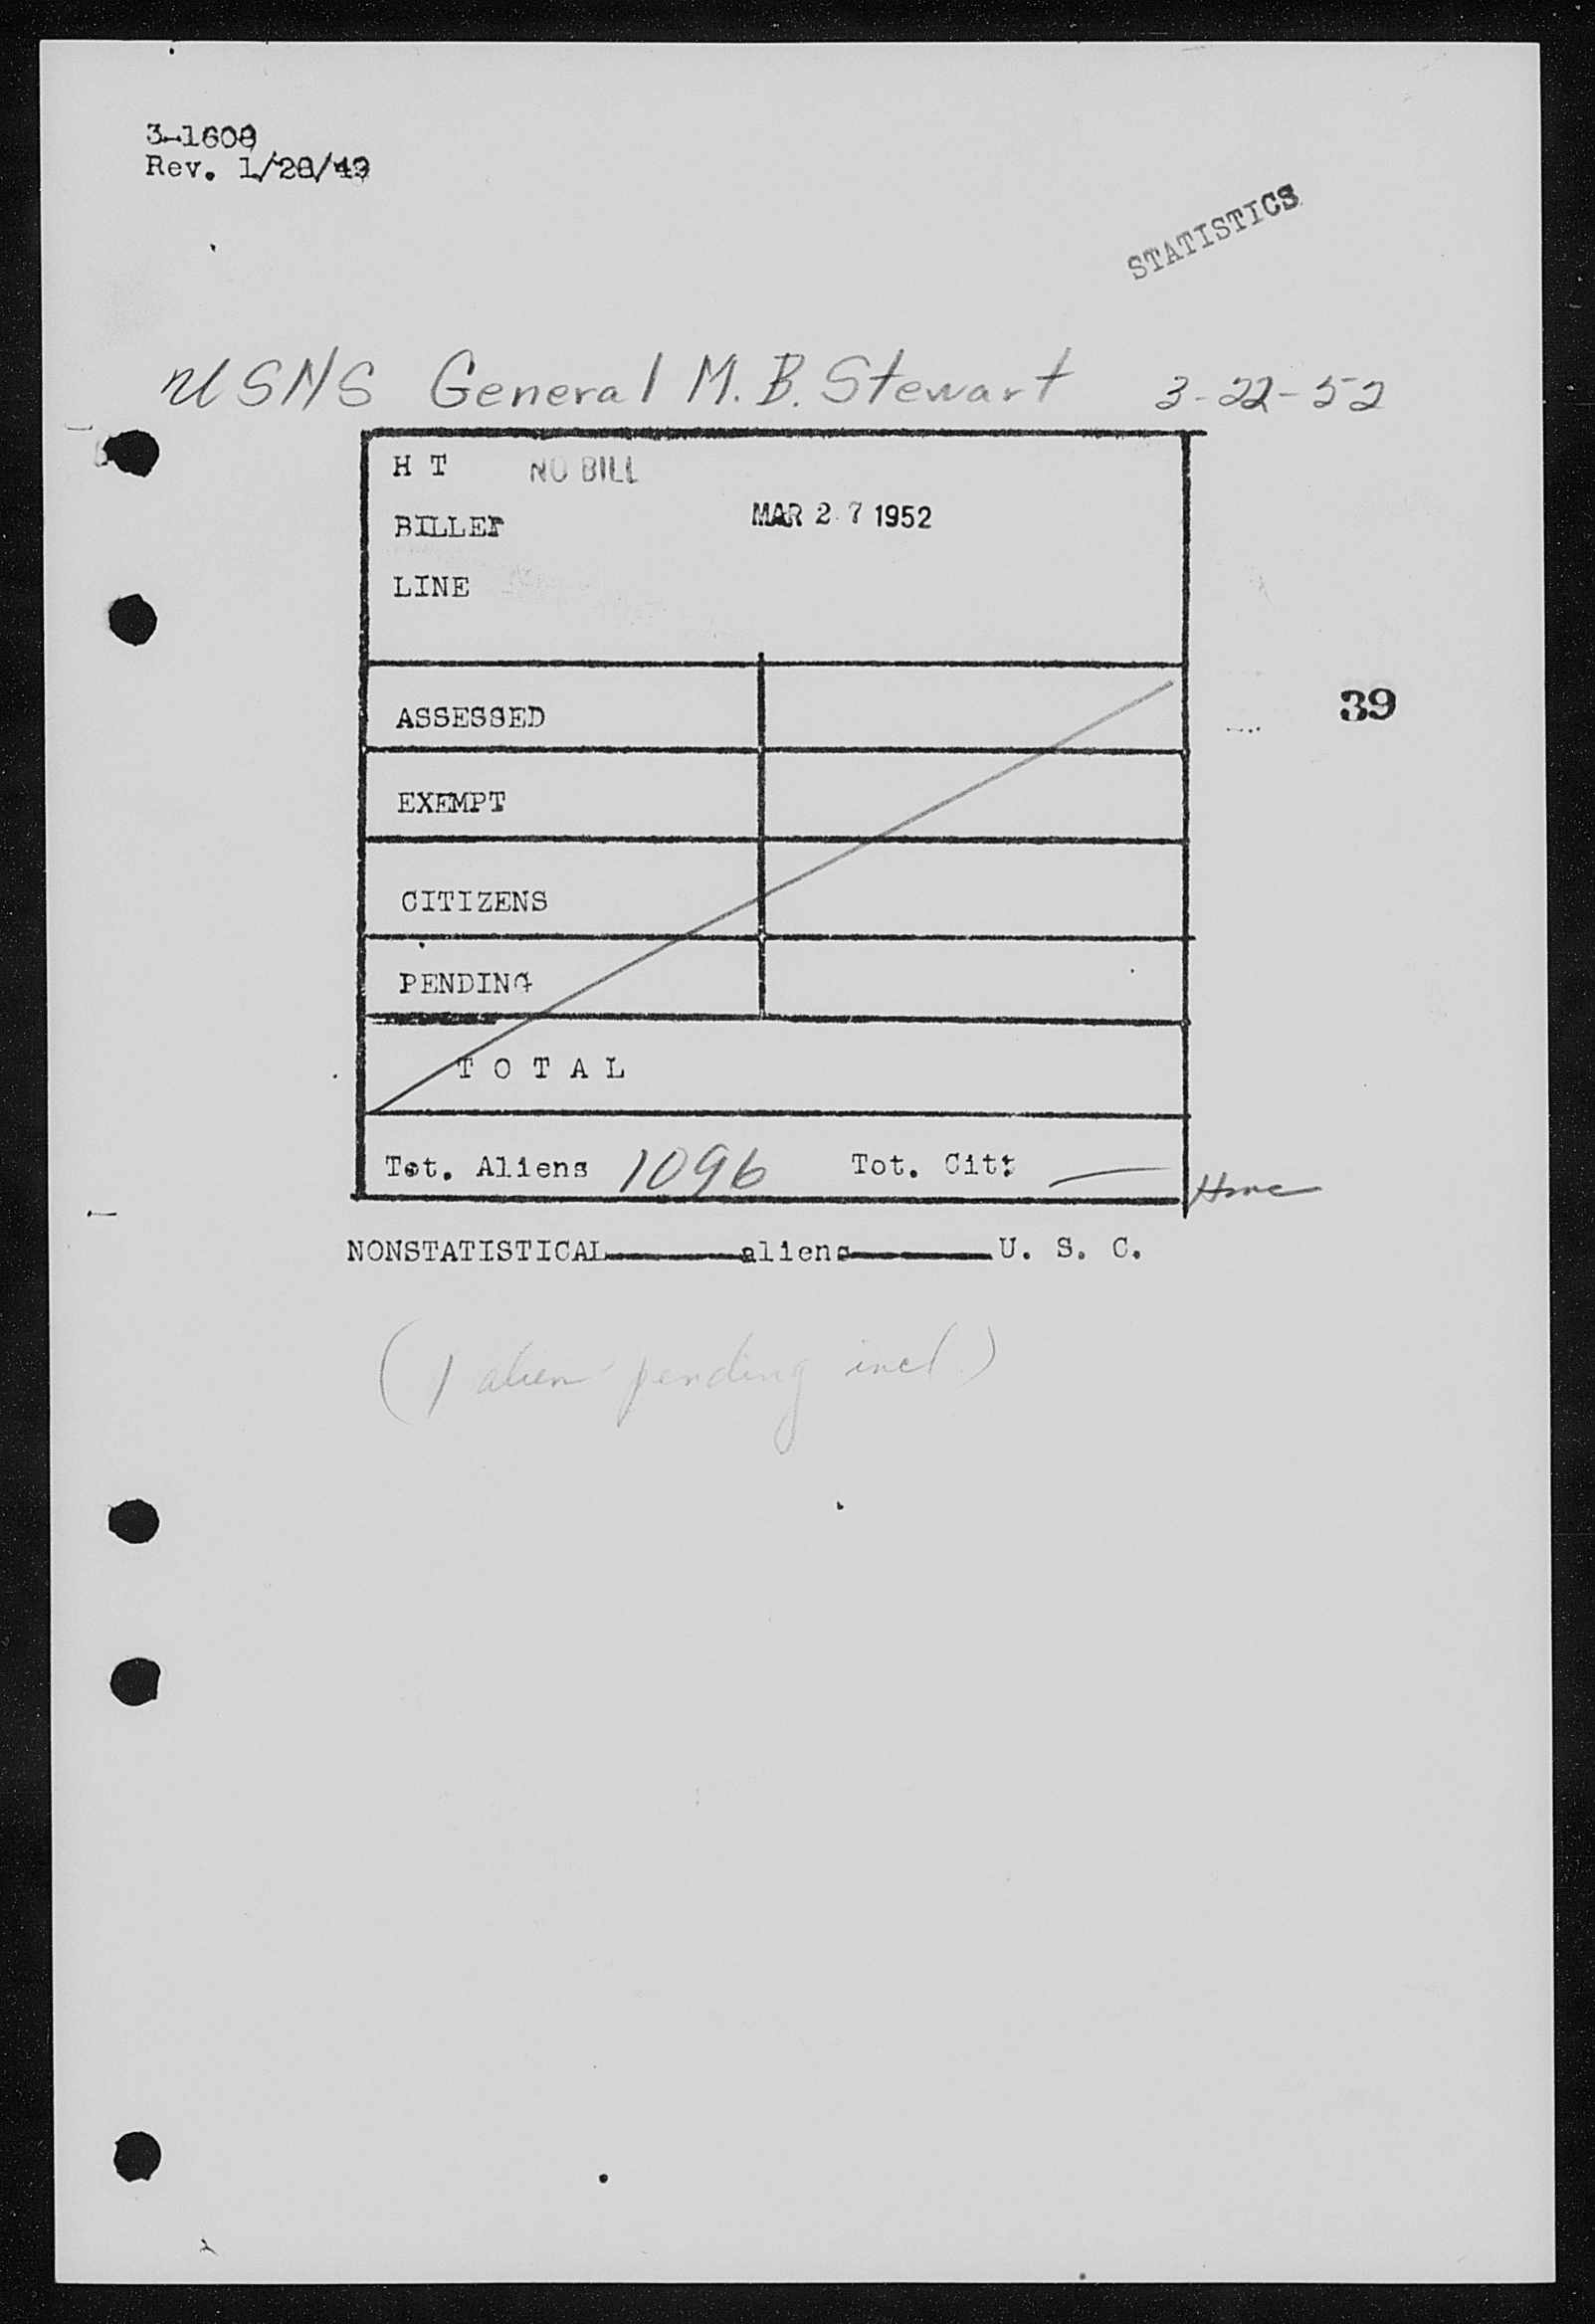 3-1608
Rev. 1/28/49
STATISTICS
USNS General M. B. Stewart 3-22-52
H T NO BILL
BILLET MAR 27 1952
LINE
ASSESSED
39
EXEMPT
CITIZENS
PENDING
T O T A L
Tot. Aliens 1096 Tot. Cit: —
NONSTATISTICAL aliens U. S. C.
(1 alien pending incl.)